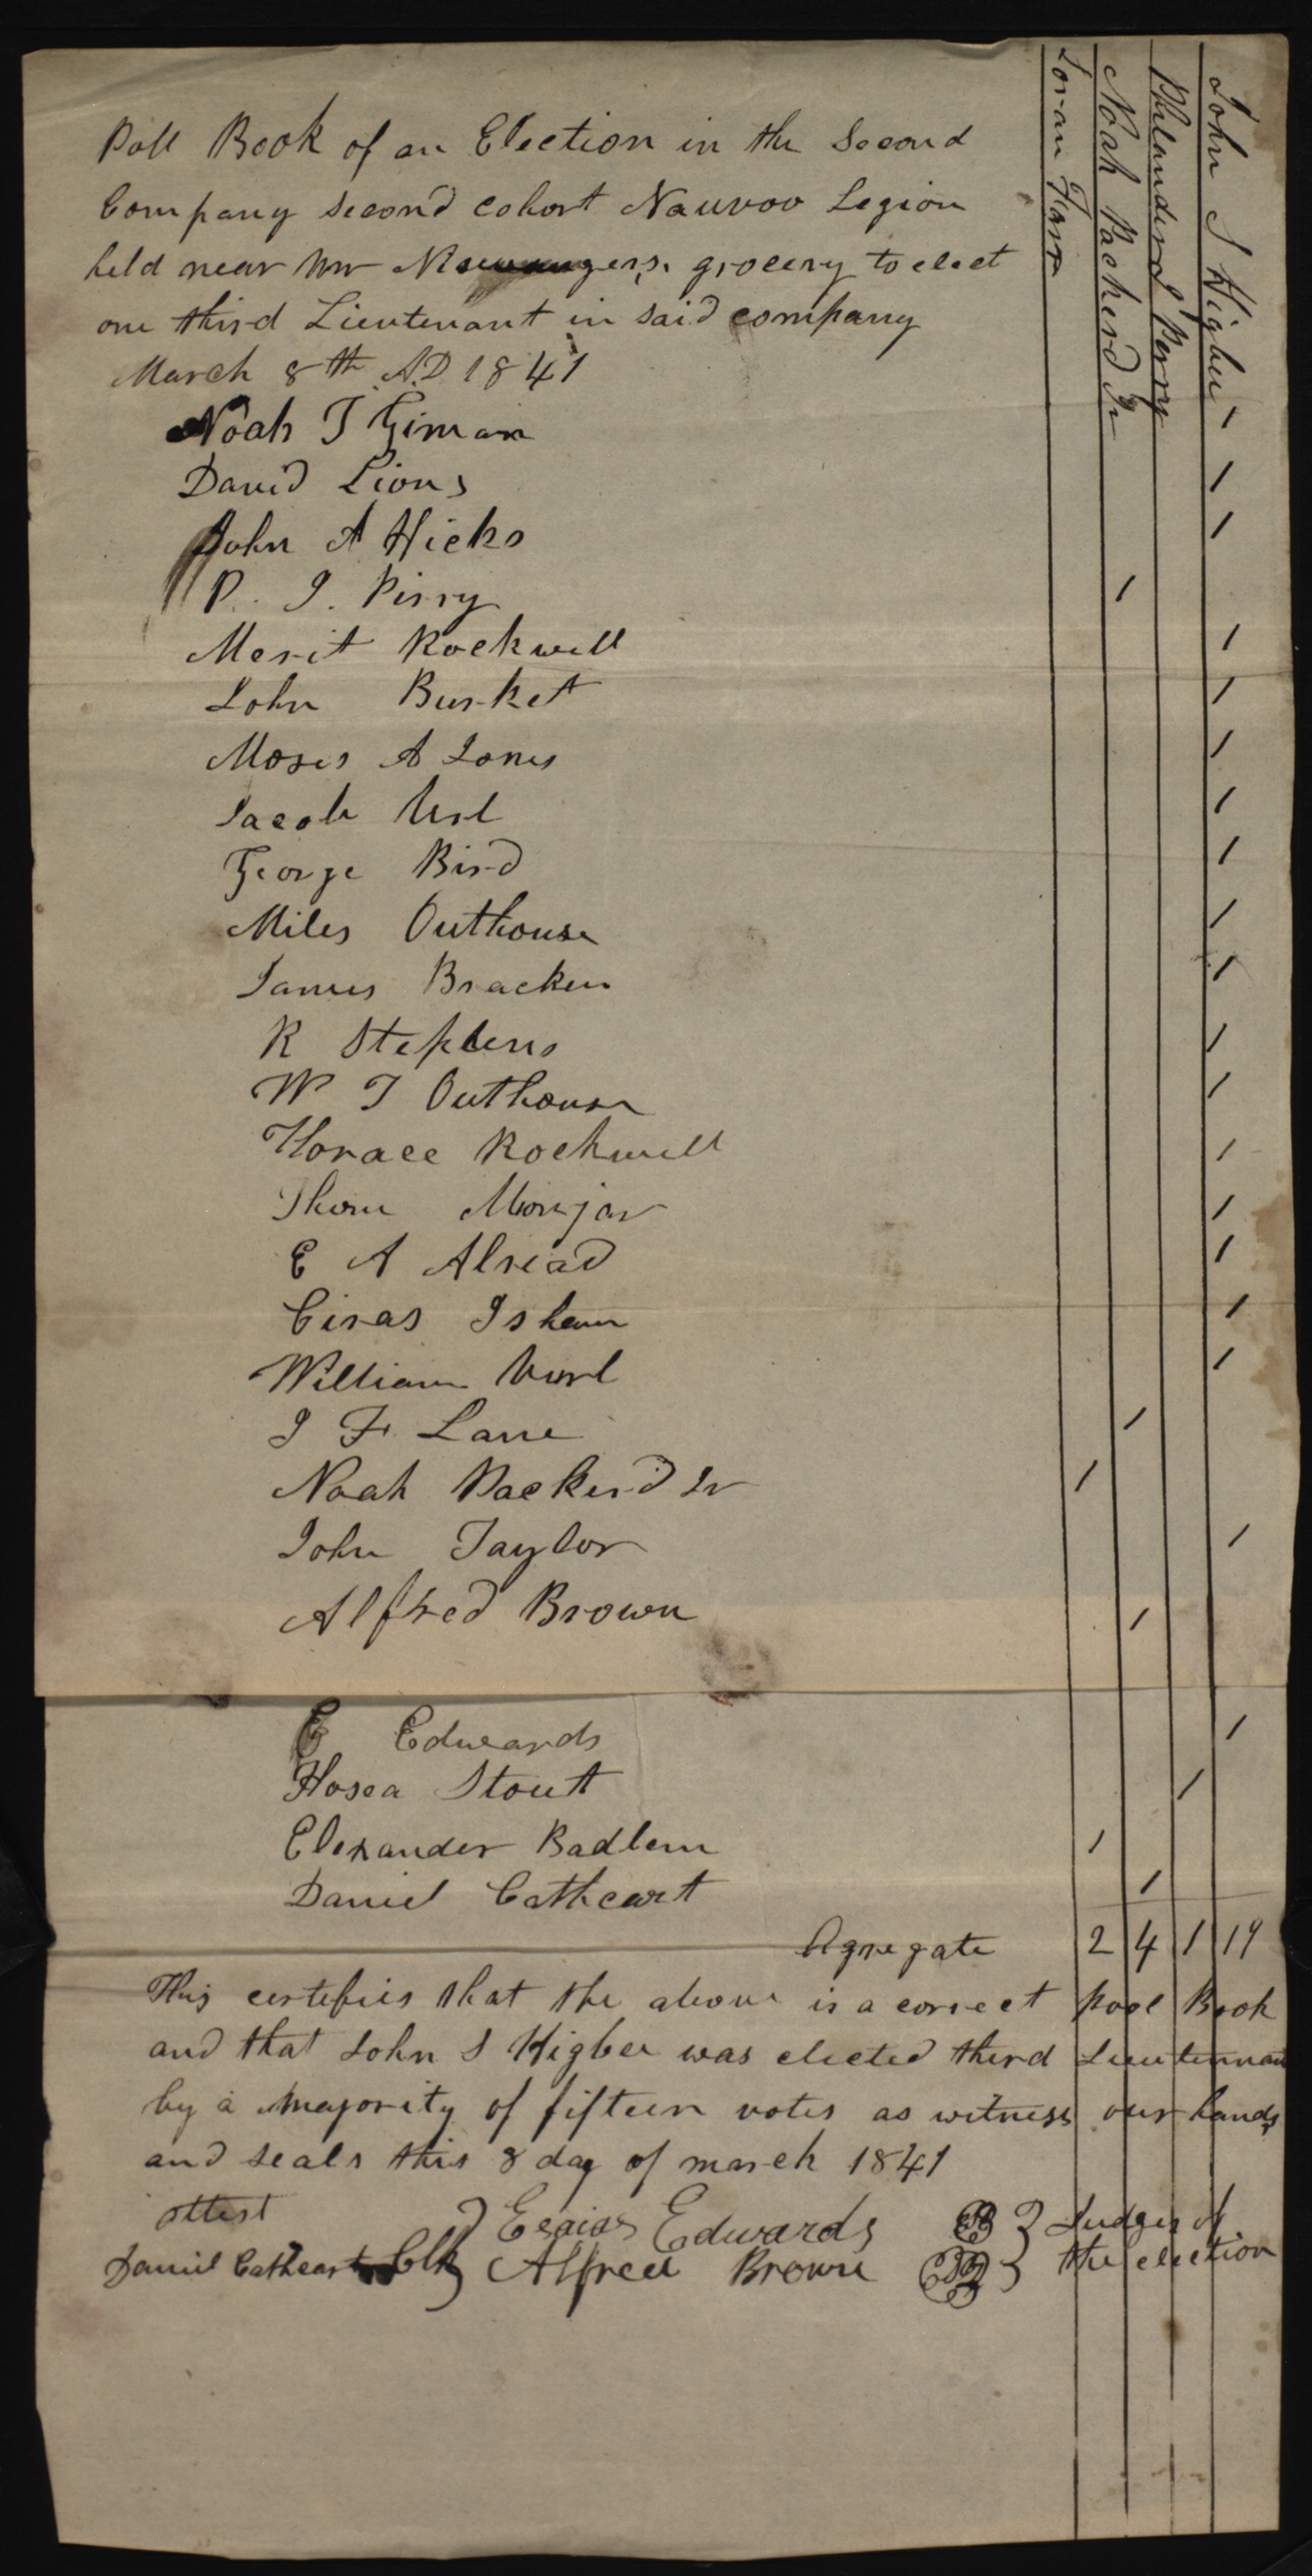 Poll Book of an Election in the Second
Company second cohort Nauvoo Legion
held near Mr grocery to elect
one third Lieutenant in said company
March 8th A.D 1841
Loran Farr
Noah Packerd Jr
Philander J Perry
John S Higbee
Noah T Giman
David Lions
John A Hicks
P. J. Pirry
Merit Rockwell
John Burket
Moses A Jones
Jacob Url
George Bird
Miles Outhouse
James Bracken
R Stephens
W T Outhouse
Horace Rockwell
Thom Monjar
E A Alread
Ciras Isham
William Wurl
J F. Lane
Noah Packerd Jr
John Taylor
Alfred Brown
E Edwards
Hosea Stout
Elexander Badlem
Daniel Cathcart
Agregate 2 4 1 19
This certefies that the above is a correct pool Book
and that John S Higbee was elected third Lieutennant
by a majority of fifteen votes as witness our hands
and seals this 8 day of march 1841
attest
Esaias Edwards Judges of
Daniel Cathcart Clk Alfred Brown the election